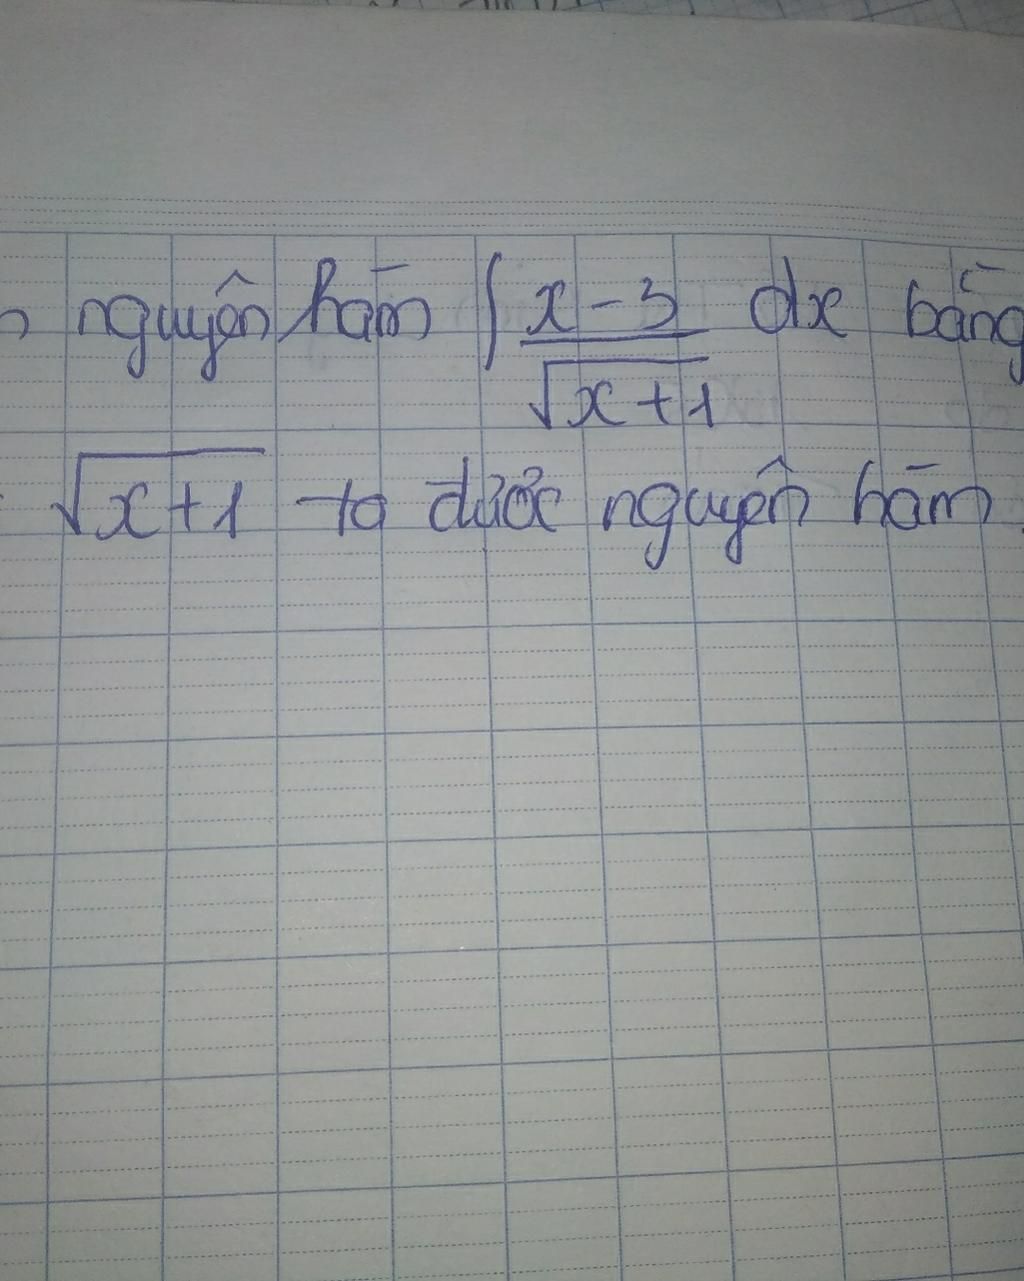 nguyên hàm ∫ x - 3 / √x+1 dx bằng
√x+1 ta được nguyên hàm